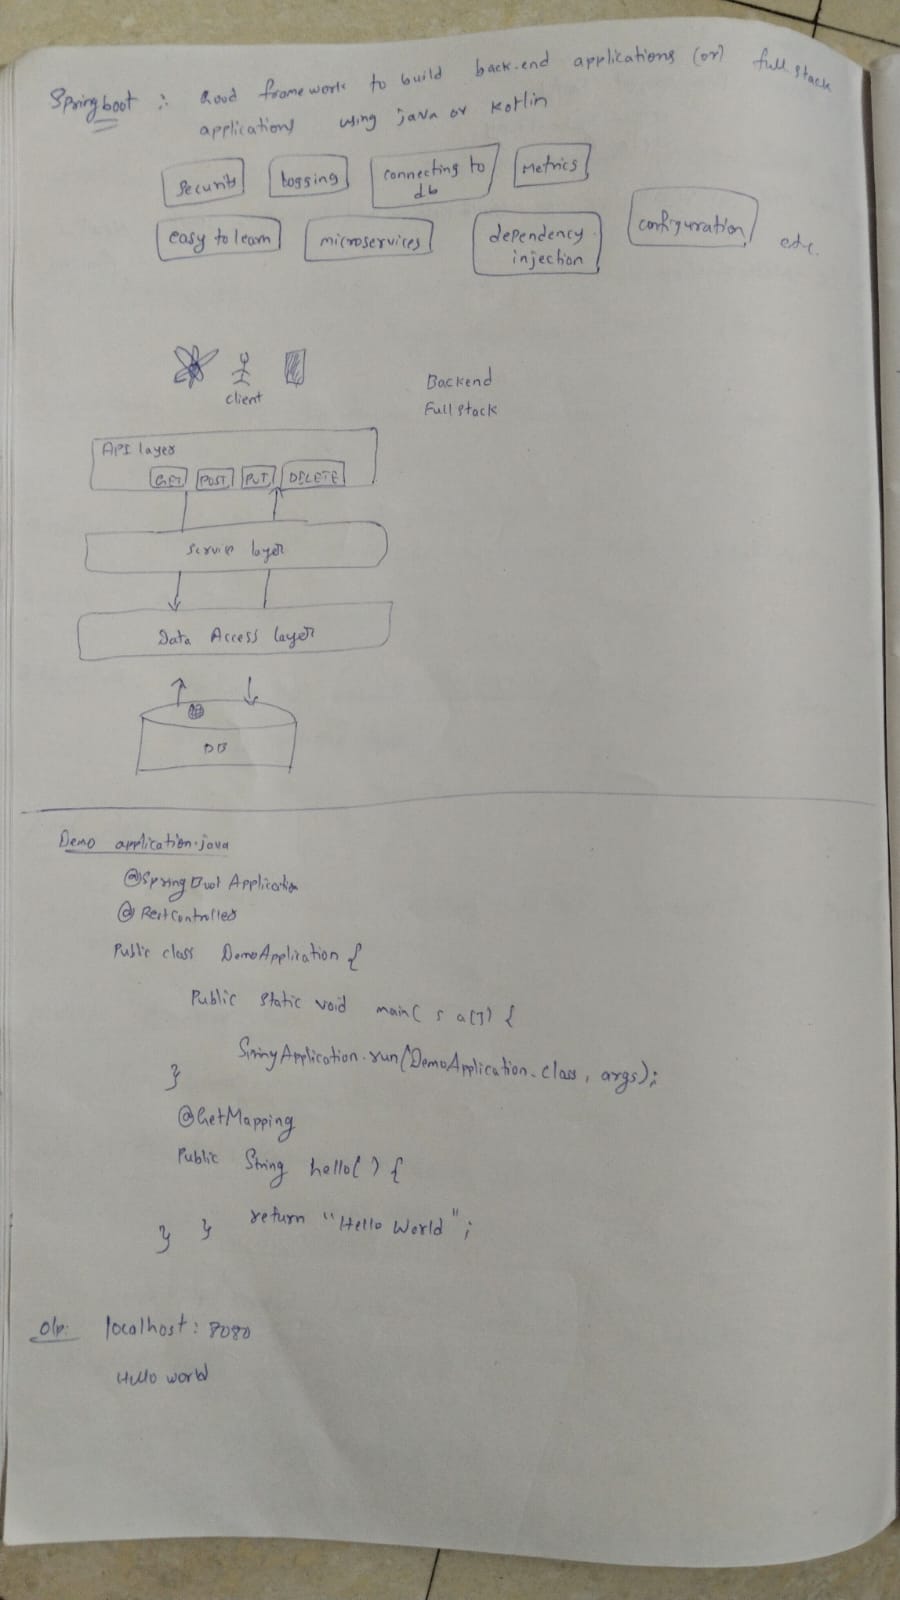 Springboot : Good framework to build back-end applications (or) full stack
applications using java or Kotlin
Security Logging connecting to db Metrics
easy to learn microservices dependency injection configuration etc.
client
Backend
Full stack
API layer
GET POST PUT DELETE
Service layer
Data Access layer
DB
Demo application.java
@SpringBoot Application
@RestController
Public class DemoApplication {
Public static void main( s a[]) {
SpringApplication.run(DemoApplication.class, args);
}
@GetMapping
Public String hello( ) {
return "Hello World";
} }
O/p: localhost: 8080
Hello world